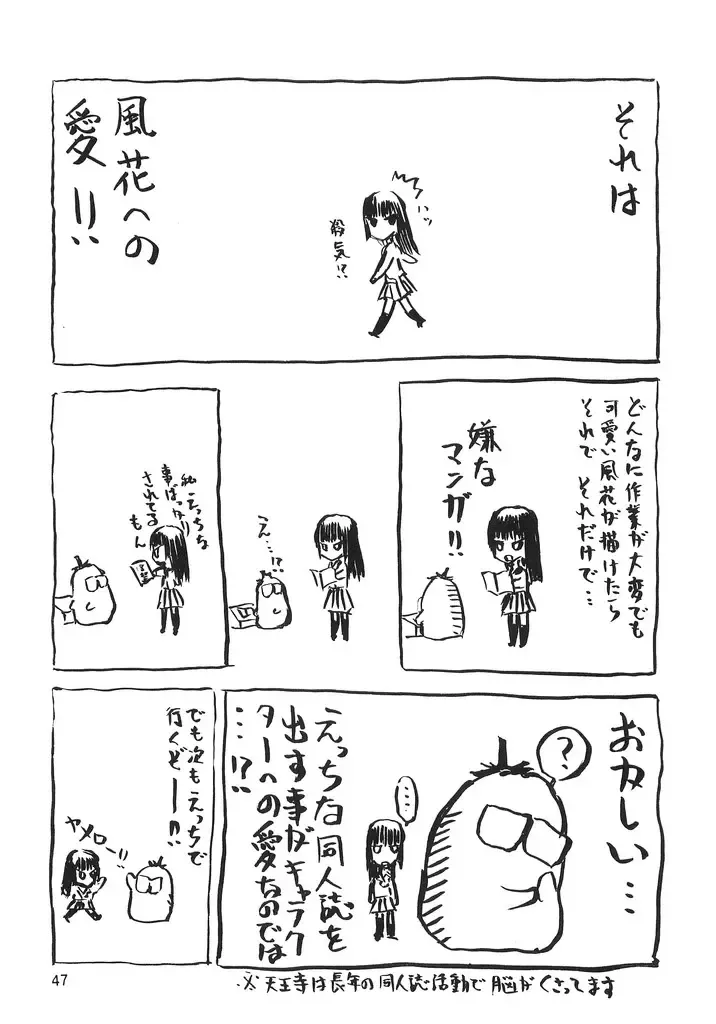 それは
ハッ
殺気!?
風花への
愛!!
どんなに作業が大変でも
可愛い風花が描けたら
それで それだけで…
嫌な
マンガ!!
え…!?
私えっちな
事ばっかり
されてる
もん
おカしい…
?
……
えっちな同人誌を
出す事がキャラク
ターへの愛なのでは
…!?
でも次もえっちで
行くぞー!!
ヤメロー!!
※天王寺は長年の同人誌活動で脳がくさってます
47